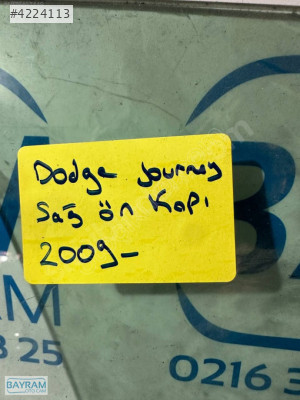 #4224113
Dodge Journey
Sağ ön Kapı
2009-
AM
B 25
0216 3
BAYRAM